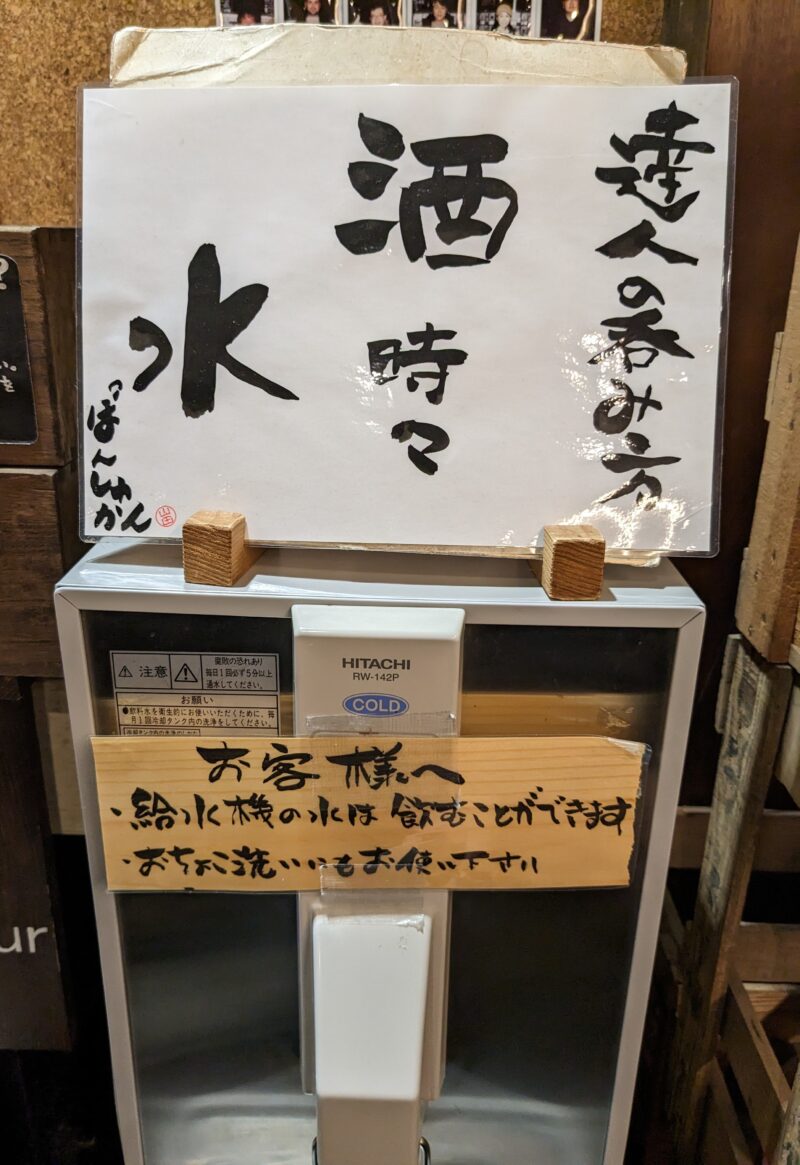 達人の呑み方
酒
時々
水
ぽんしゅかん
HITACHI
RW-142P
COLD
注意
毎日1回必ず5分以上
通水してください。
お願い
●飲料水を衛生的にお使いいただくために、毎
月1回冷却タンク内の洗浄をしてください。
お客様へ
・給水機の水は飲むことができます
・おちょこ洗いにもお使い下さい
ur